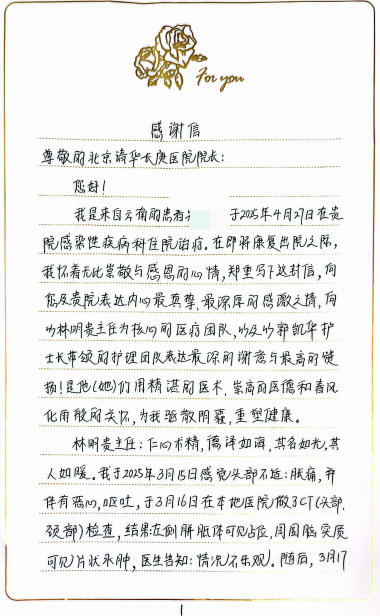 For you
感谢信
尊敬的北京清华长庚医院院长：
您好！
我是来自云南的患者 于2025年4月27日在贵
院感染性疾病科住院治疗。在即将康复出院之际，
我怀着无比崇敬与感恩的心情，郑重写下这封信，向
您及贵院表达内心最真挚、最深厚的感激之情，向
以林明贵主任为核心的医疗团队，以及以郭凯华护
士长带领的护理团队表达最深的谢意与最高的赞
扬！是他(她)们用精湛的医术，崇高的医德和春风
化雨般的关怀，为我驱散阴霾，重塑健康。
林明贵主任：仁心术精，德泽如海，其名如光，其
人如暖。我于2025年3月15日感觉头部不适：胀痛，并
伴有恶心，呕吐，于3月16日在本地医院做了CT(头部、
颈部)检查，结果：左侧胼胝体可见占位，周围脑实质
可见片状水肿，医生告知：情况不乐观。随后，3月17
1